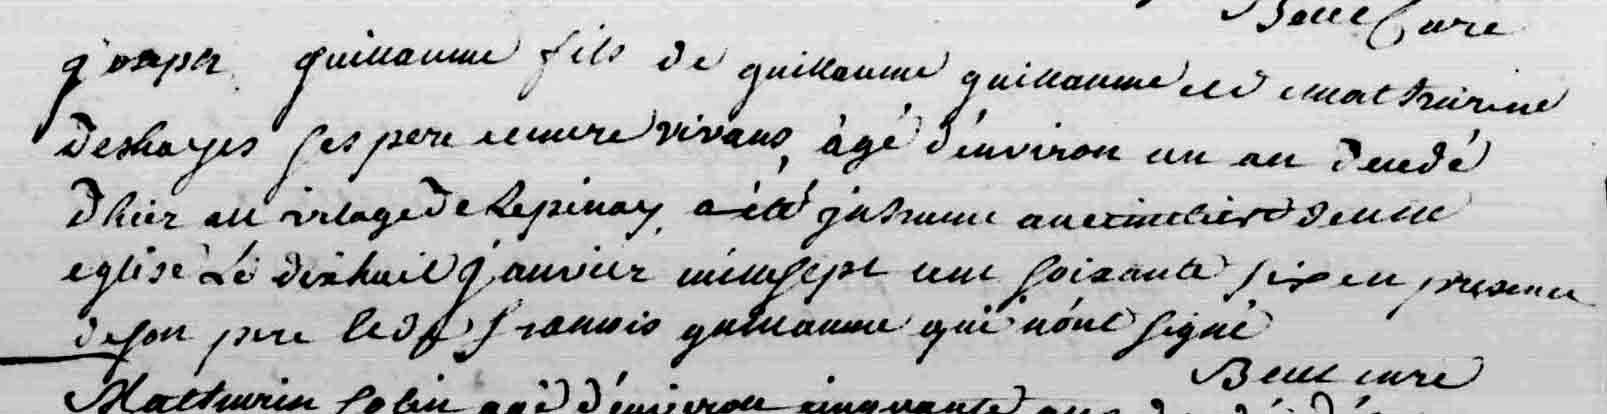 Curé
joseph guillaume fils de guillaume guillaume et de mathurine
deshayes ses pere et mere vivans, âgé d'environ un an decedé
d'hier au vilage de Lepinay, a été inhumé au cimetiere de cette
eglise Le dixhuit janvier mil sept cent soixante six en presence
de son pere et de françois guillaume qui n'ont signé
curé
Mathurin Colin agé d'environ cinquante ans